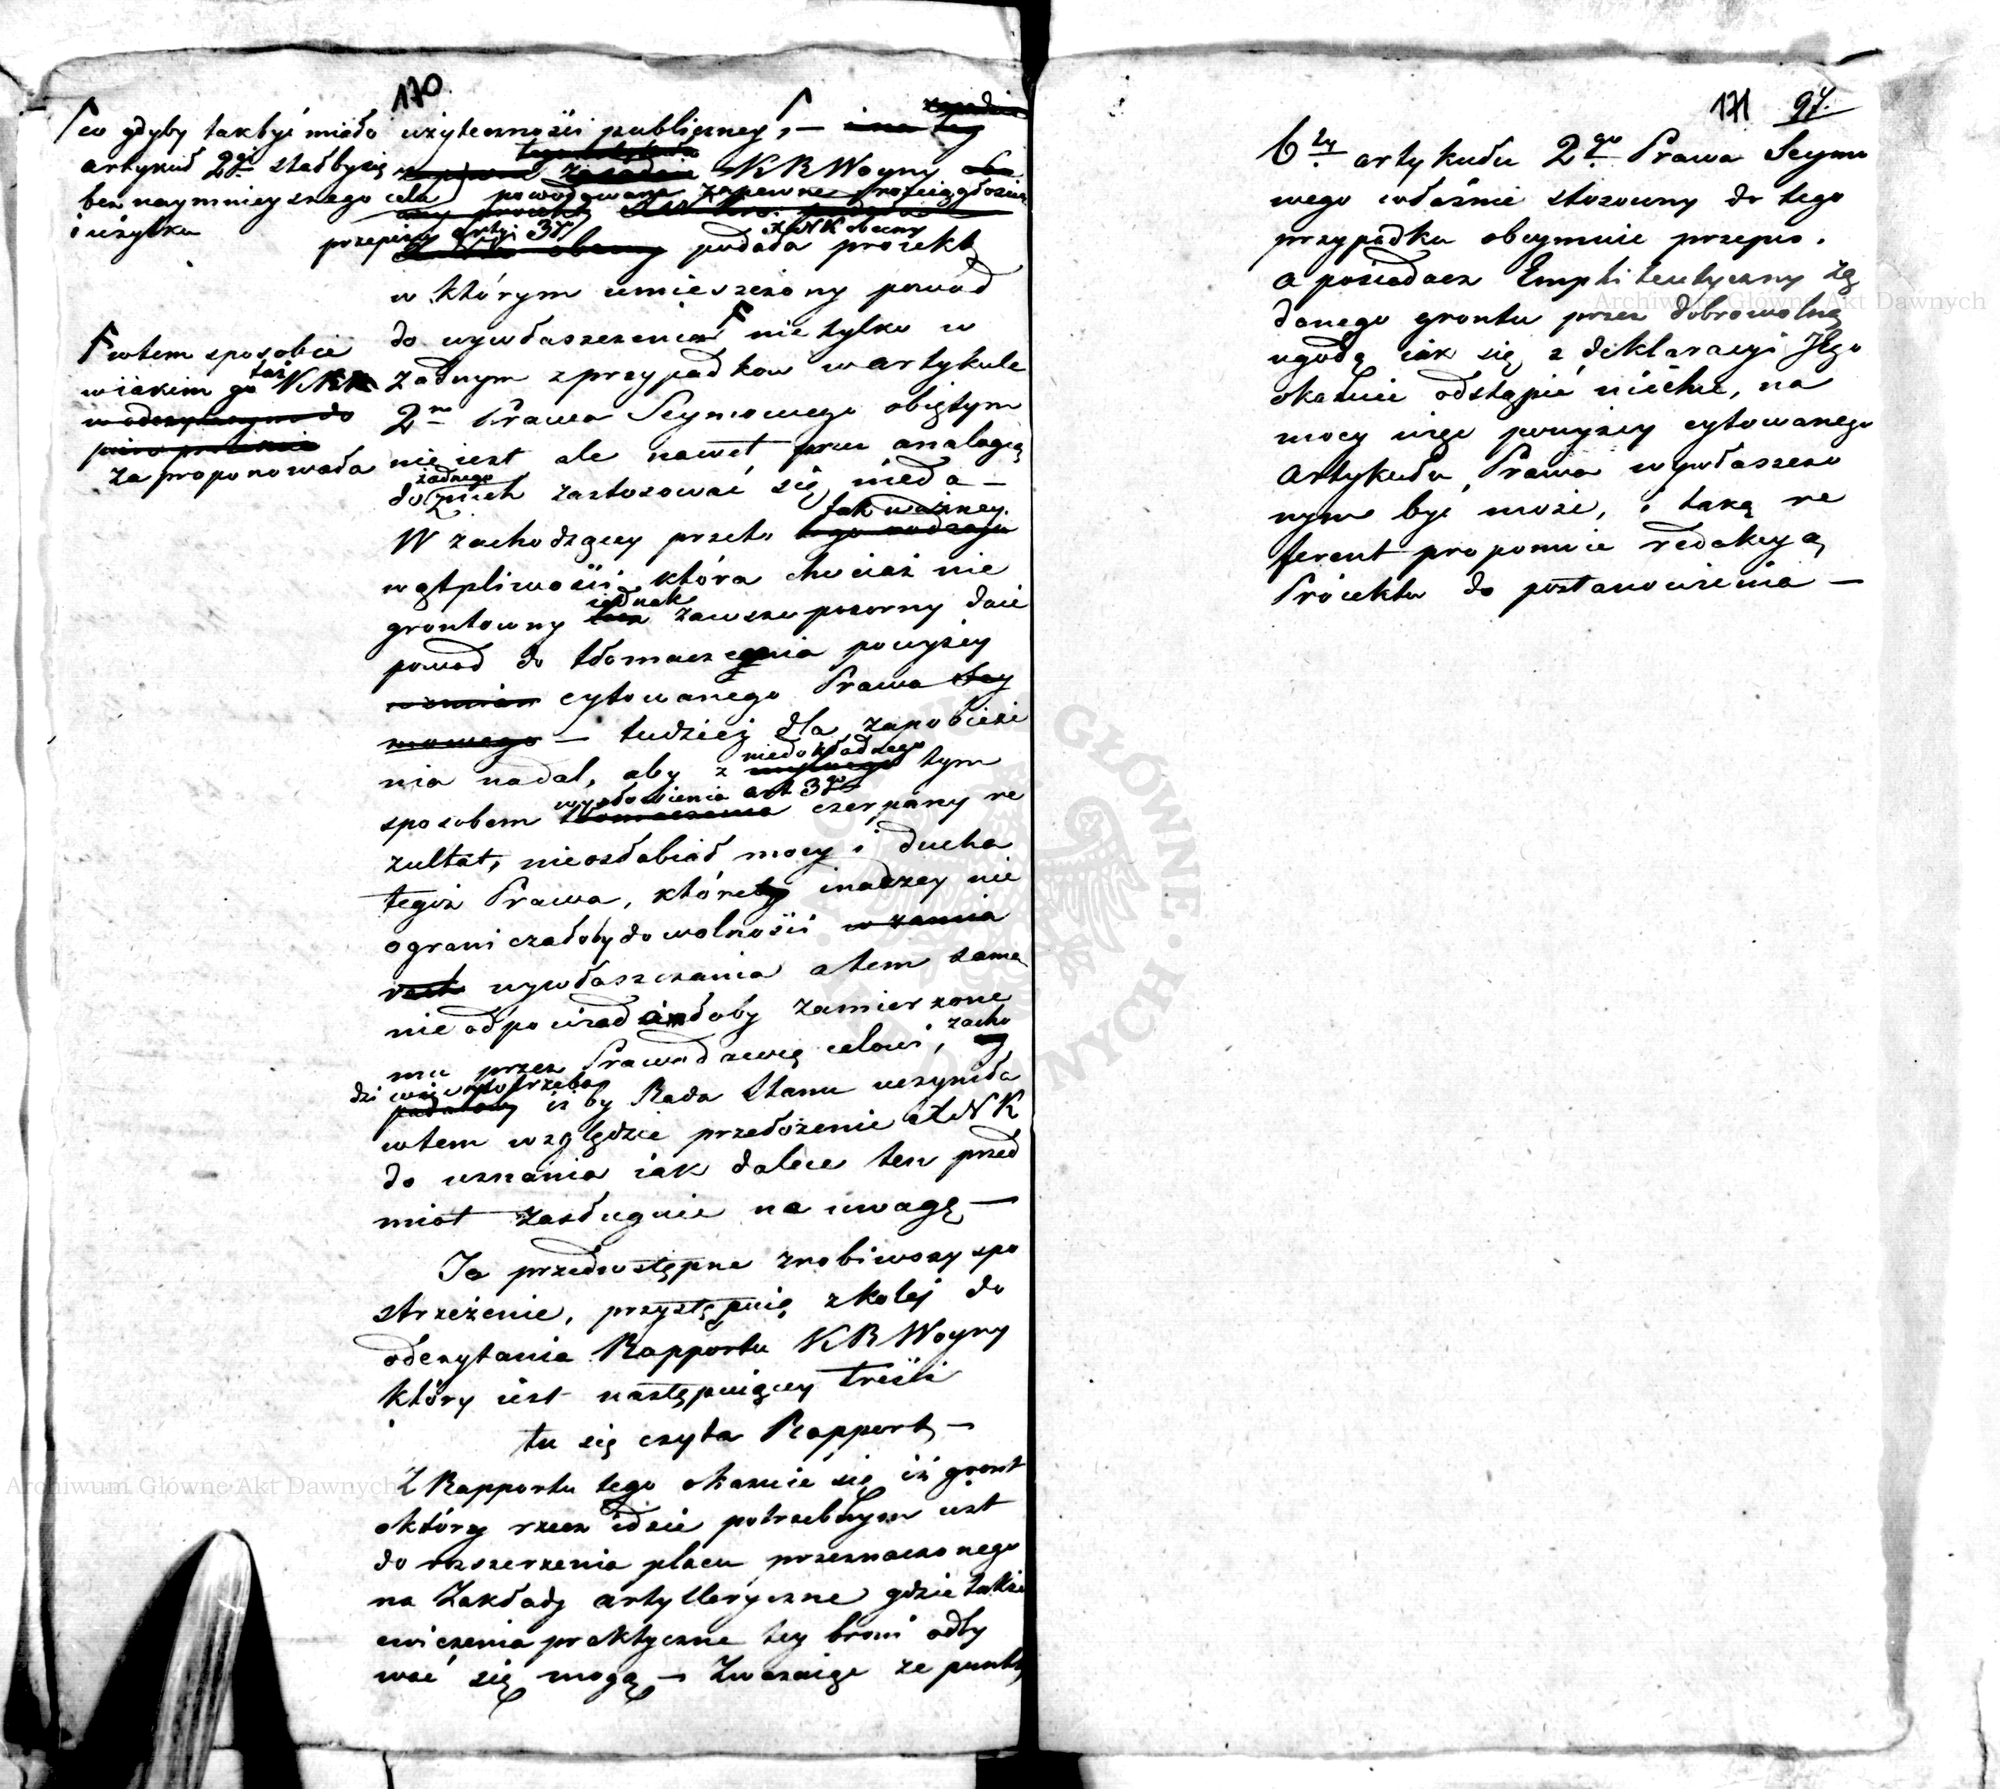 170
co gdyby takbyć miało
artykuł 2gi stałbysię
bez naymnieyszego celu
i użytku
użyteczności publiczney, —
K R Woyny
powodowana zapewne rozciągłością
przepisu arty: 3go
podała X N K obecny proiekt
w którym umieszczony powód
do wywłaszczenia nie tylko w
wtem sposobie
w iakim go taż K R W
zaproponowała
żadnym z przypadkow w artykule
2m Prawa Seymowego obiętym
nie iest ale nawet przez analogią
do żadnego z nich zastosować się nieda —
W zachodzącey przeto tak ważney
wątpliwości, która chociaż nie
grontowny iednak zawsze pozorny daie
powod do tłomaczenia powyżey
cytowanego Prawa
— tudzież dla zapobieże
nia nadal, aby z niedokładnego tym
sposobem wysłowienia art 3go czerpany re
zultat, nieosłabiał mocy i ducha
tegoż Prawa, które inaczey nie
ograniczałoby dowolności
wywłaszczania a tem samem
nie odpowiadałoby zamierzone
mu przez Prawodawcę celowi, zacho
dzi więc potrzeba iżby Rada Stanu uczyniła
wtem względzie przełożenie X N K
do uznania iak dalece ten przed
miot zasługuie na uwagę —
Ta przedwstępne zrobiwszy spo
strzeżenie, przystępuię zkolej do
odczytania Rapportu K R Woyny
który iest następuiącey treści
tu się czyta Rapport —
Z Rapportu tego okazuie się iż gront
o który rzecz idzie potrzebnym iest
do rozszerzenia placu przeznaczonego
na Zakłady artylleryczne gdzie także
ćwiczenia praktyczne tey broni odby
wać się mogą — Zważaiąc że punkt
171 97.
6ty artykułu 2go Prawa Seymo
wego właśnie stosowny do tego
przypadku obeymuie przepis.
a posiadacz Emphiteutyczny żą
danego grontu przez dobrowolną
ugodę iak się z deklaracyi Jego
okazuie odstąpić niechce, na
mocy więc powyżey cytowanego
Artykułu Prawa wywłaszczo
nym być może, i taką re
ferent proponuie redakcyą
Proiektu do postanowienia —
Archiwum Główne Akt Dawnych
Archiwum Główne Akt Dawnych